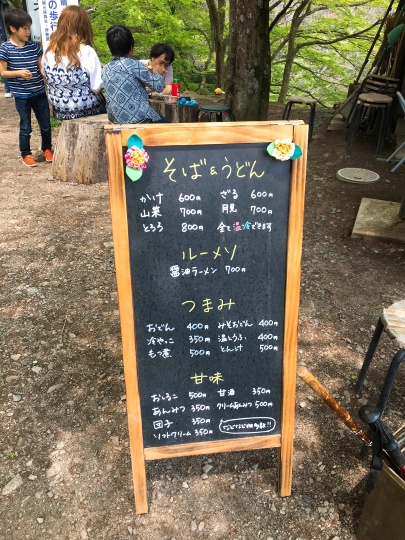 の歩
そば&うどん
かけ 600円 ざる 600円
山菜 700円 月見 700円
とろろ 800円 全て温冷できます
ルーメソ
醤油ラーメン 700円
つまみ
おでん 400円 みそおでん 400円
冷やっこ 350円 温とうふ 400円
もつ煮 500円 とん汁 500円
甘味
おしるこ 500円 甘酒 350円
あんみつ 350円 クリームあんみつ 500円
団子 350円
ソフトクリーム 350円